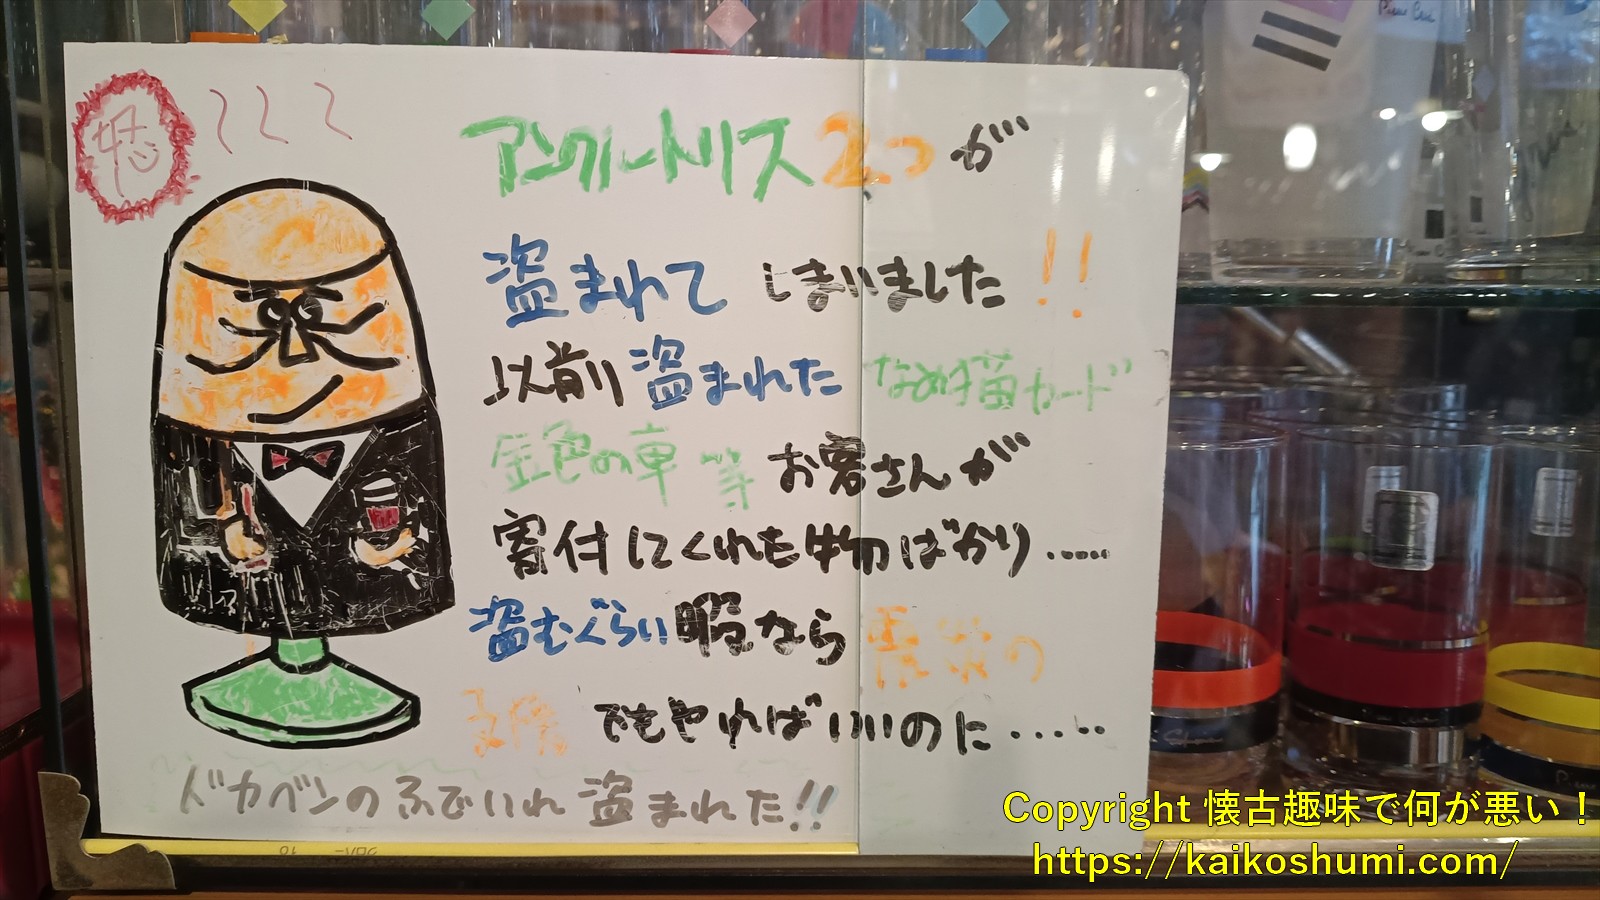 怒
アンクルトリス2つが
盗まれて しまいました!!
以前 盗まれた なめ猫カード
金色の車 等 お客さんが
寄付してくれた物ばかり……
盗むぐらい暇なら 震災の
支援 でもやればいいのに……
ドカベンのふでいれ 盗まれた!!
Copyright 懐古趣味で何が悪い！
https://kaikoshumi.com/